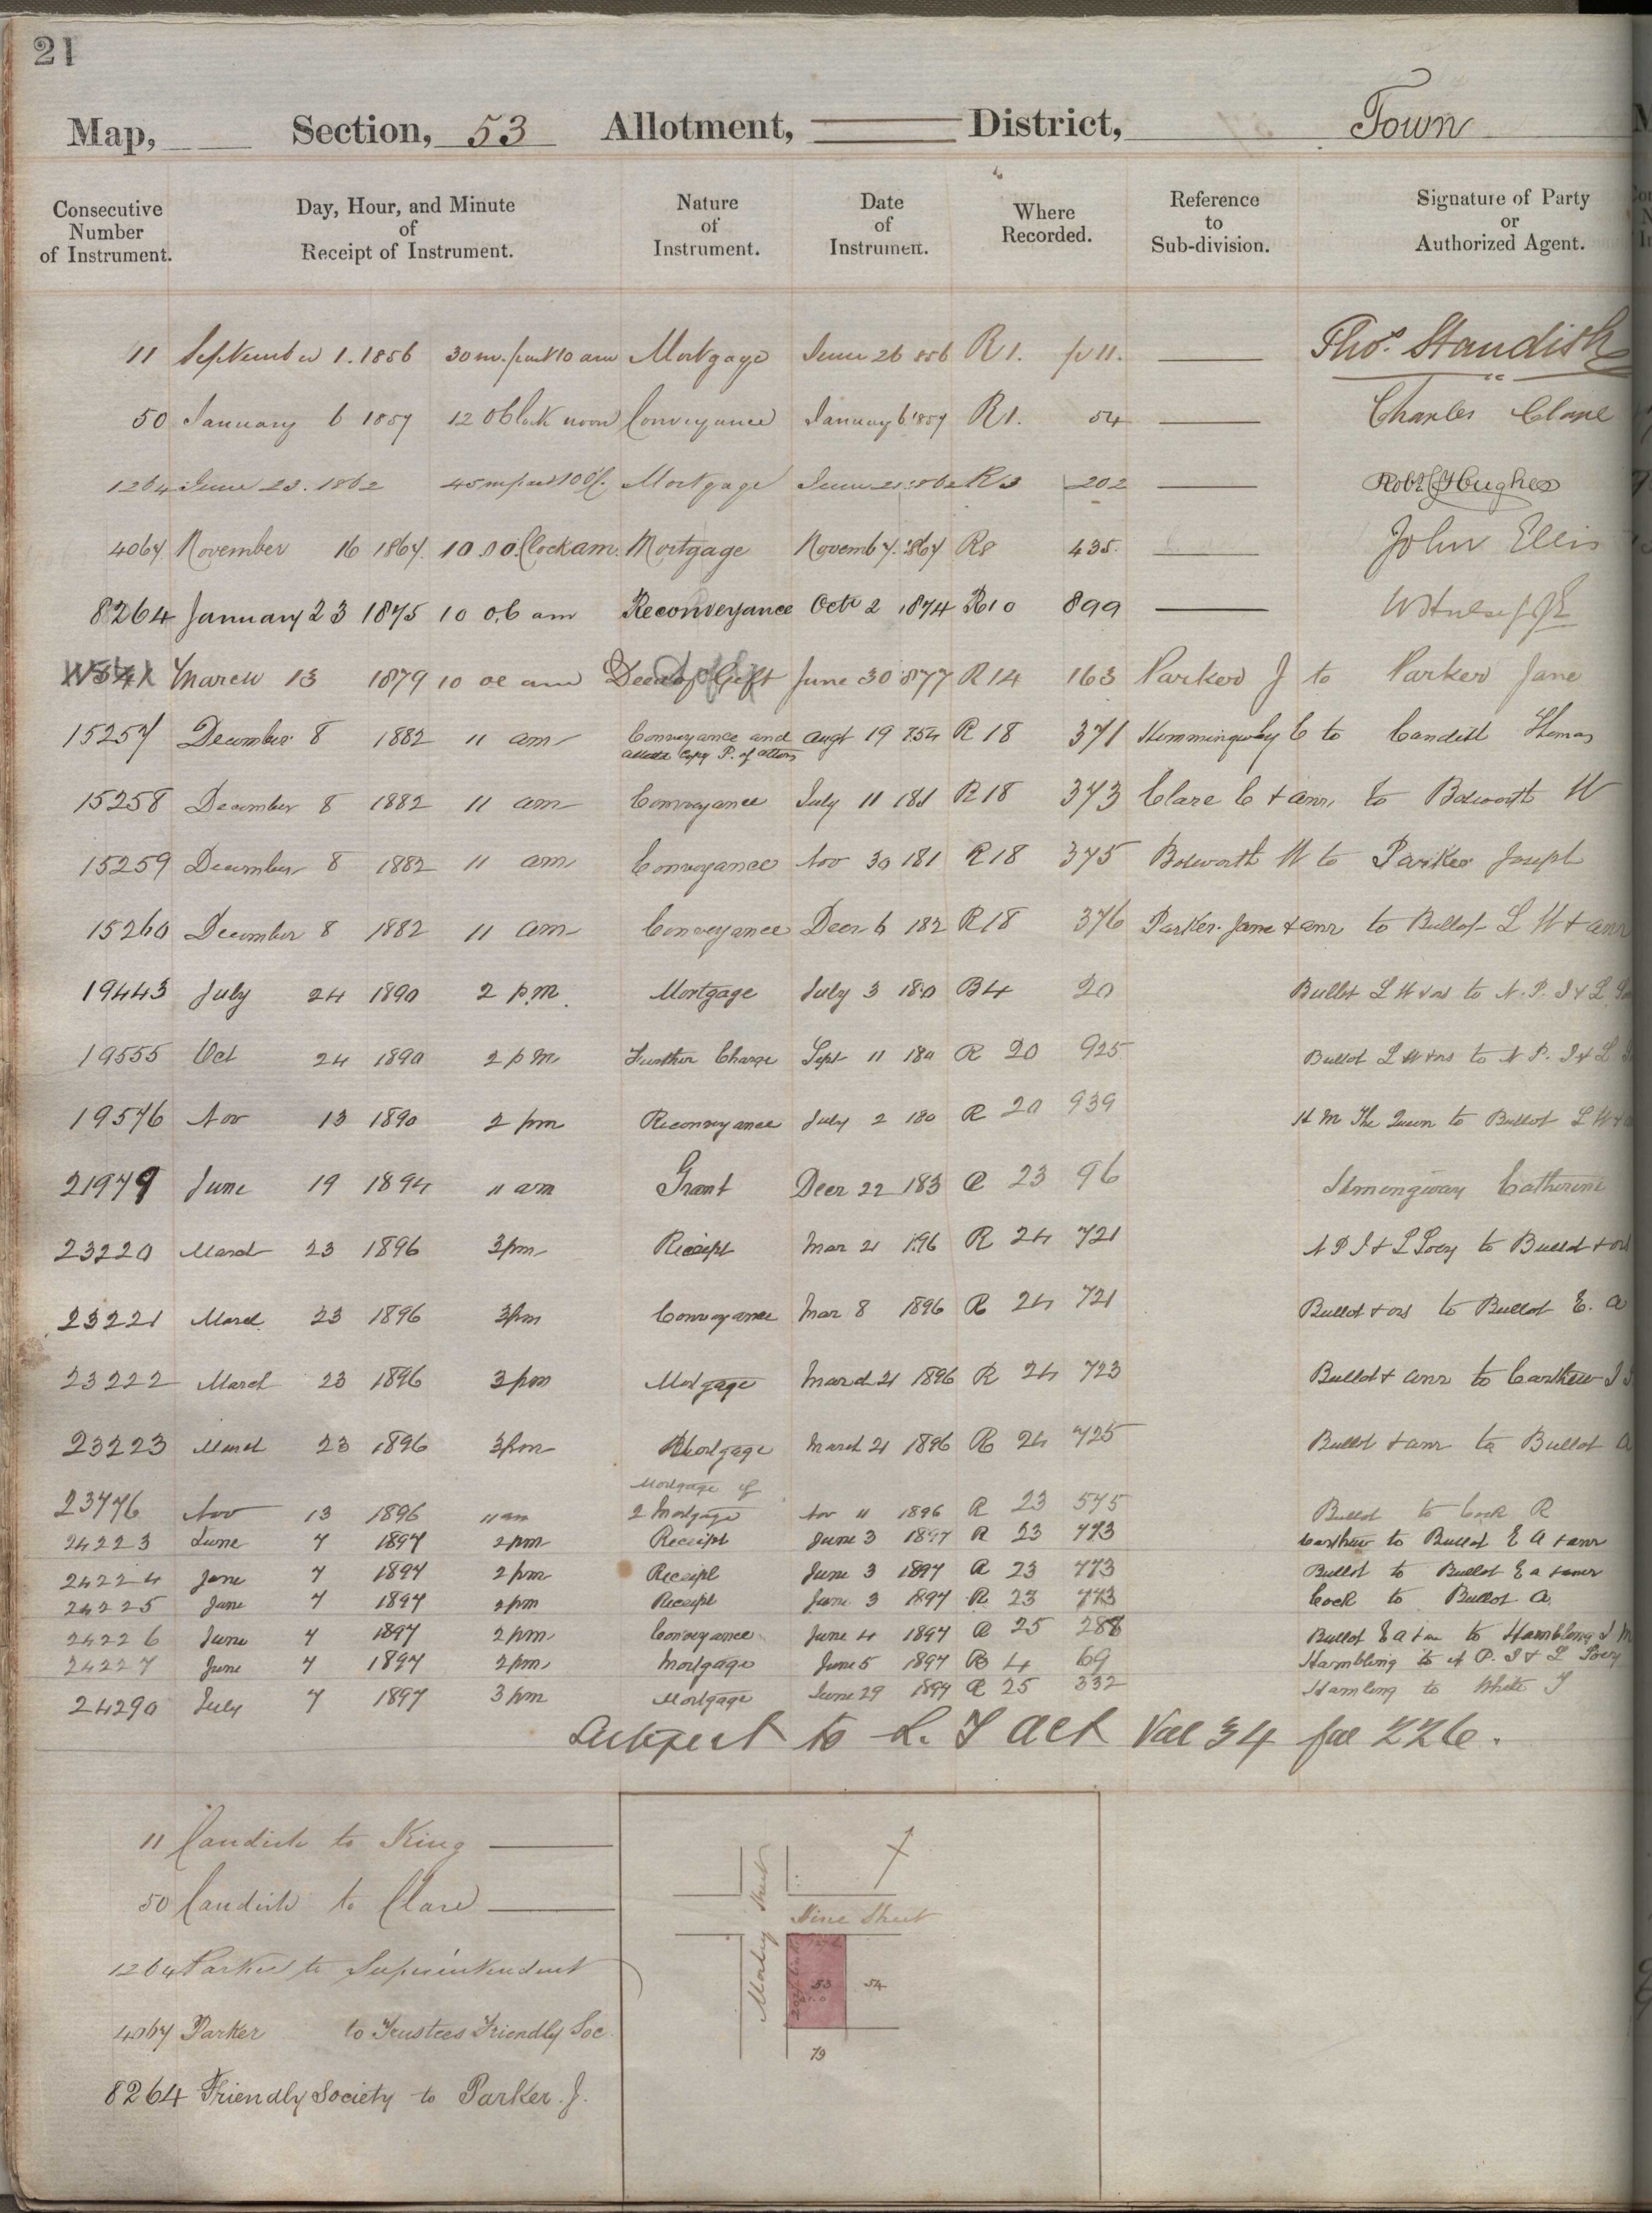 21
Map, Section, 53 Allotment, District, Town
Consecutive Number of Instrument. Day, Hour, and Minute of Receipt of Instrument. Nature of Instrument. Date of Instrument. Where Recorded. Reference to Sub-division. Signature of Party or Authorized Agent.
11 September 1. 1856 30 m. past 10 am Mortgage June 26 856 R 1. p 11. Thos. Standish
50 January 6 1857 12 OClock noon Conveyance January 6 1857 R 1. 54 Charles Clare
1264 June 23. 1862 Mortgage June 21 1862 R 3 202 Robt Hughes
4067 November 16 1867. 10 OClock am. Mortgage Novemb 7. 1867 R 8 435. John Ellis
8264 January 23 1875 10 o.c am Reconveyance Octr 2 1874 R 10 899
March 13 1879 10 oc am Deed of Gift June 30 1877 R 14 163 Parker J to Parker Jane
15257 December 8 1882 11 am Conveyance and Augt 19 1854 R 18 371 Hemmingway C to Candish Thomas
attested Copy P. of attory
15258 December 8 1882 11 am Conveyance July 11 181 R 18 373 Clare C + anr. to Bosworth W
15259 December 8 1882 11 am Conveyance Nov 30 181 R 18 375 Bosworth W to Parker Joseph
15260 December 8 1882 11 am Conveyance Decr 6 182 R 18 376 Parker Jane + anr to Bullot L W + anr
19443 July 24 1890 2 p.m. Mortgage July 3 180 B 4 20 Bullot L W + ors to N. P. I + L
19555 Oct 24 1890 2 pm Further Charge Sept 11 180 R 20 925 Bullot L W + ors to N P. I + L
19576 Nov 13 1890 2 pm Reconveyance July 2 180 R 20 939 H M The Queen to Bullot L W +
21979 June 19 1894 11 am Grant Decr 22 183 R 23 96 Hemengway Catherine
23220 March 23 1896 3 pm Receipt Mar 21 1896 R 24 721 N P I + L Socy to Bullot + ors
23221 March 23 1896 3 pm Conveyance Mar 8 1896 R 24 721 Bullot + ors to Bullot E. A
23222 March 23 1896 3 pm Mortgage March 21 1896 R 24 723 Bullot + anr to Carthew
23223 March 23 1896 3 pm Mortgage March 21 1896 R 24 725 Bullot + anr to Bullot A
Mortgage of
23776 Nov 13 1896 11 am 2 Mortgage Nov 11 1896 R 23 575 Bullot to Cock R
24223 June 7 1897 2 pm Receipt June 3 1897 R 23 773 Carthew to Bullot E A + anr
24224 June 7 1897 2 pm Receipt June 3 1897 R 23 773 Bullot to Bullot E A + anor
24225 June 7 1897 2 pm Receipt June 3 1897 R 23 773 Cock to Bullot A.
24226 June 7 1897 2 pm Conveyance June 4 1897 R 25 288 Bullot E A + an to Hambling J M
24227 June 7 1897 2 pm Mortgage June 5 1897 B 4 69 Hambling to N P. I + L Socy
24290 July 7 1897 3 pm Mortgage June 29 1897 R 25 332 Hambling to White J
Subject to L. T Act Vol 34 fol 226.
11 Candish to King
50 Candish to Clare
1264 Parker to Superintendent
4067 Parker to Trustees Friendly Soc.
8264 Friendly Society to Parker. J.
Morley Street
Hine Street
53
54
79